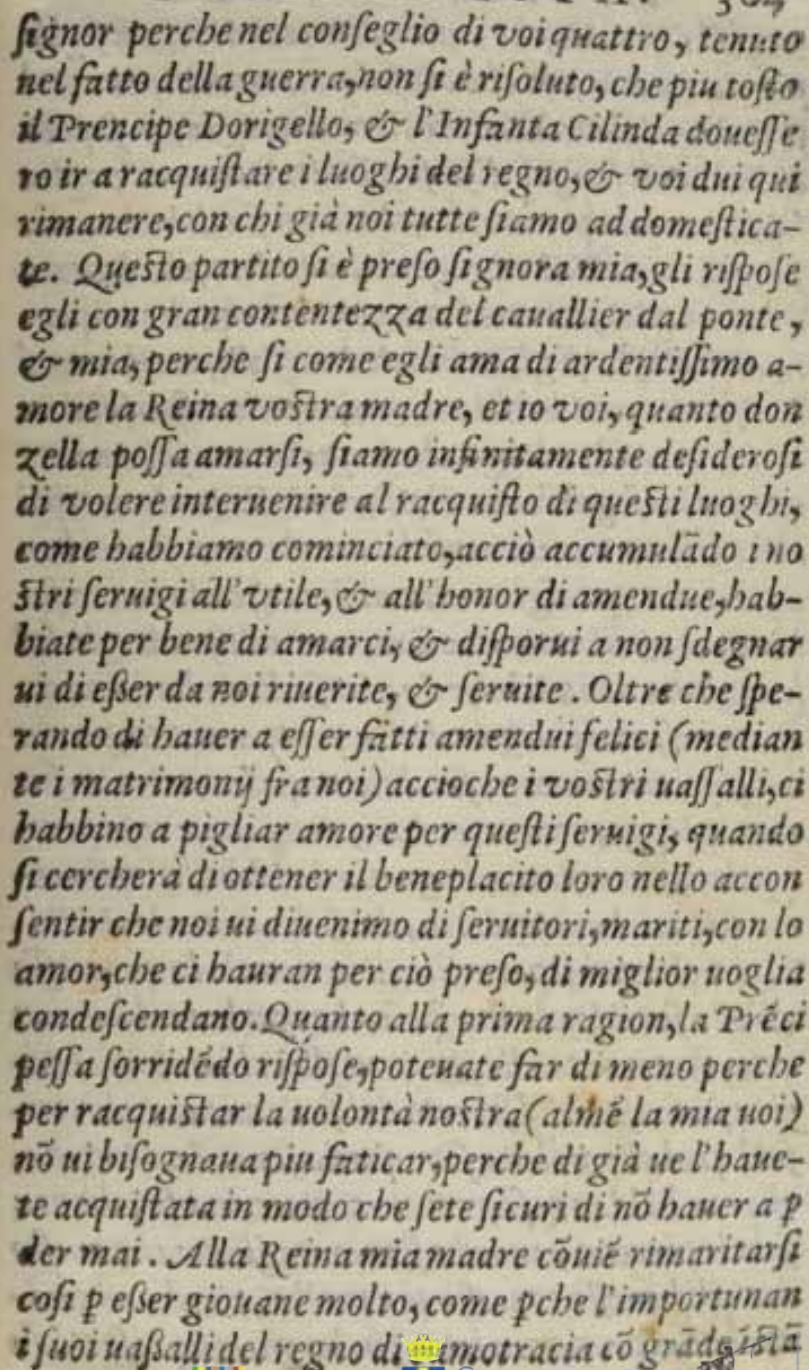 ſignor perche nel conſeglio di voi quattro, tenuto
nel fatto della guerra, non ſi è riſoluto, che piu toſto
il Prencipe Dorigello, & l'Infanta Cilinda doueſſe
ro ir a racquiſtare i luoghi del regno, & voi dui qui
rimanere, con chi già noi tutte ſiamo addomeſtica-
te. Queſto partito ſi è preſo ſignora mia, gli riſpoſe
egli con gran contentezza del cauallier dal ponte,
& mia, perche ſi come egli ama di ardentiſſimo a-
more la Reina voſtra madre, et io voi, quanto don
zella poſſa amarſi, ſiamo infinitamente deſideroſi
di volere interuenire al racquiſto di queſti luoghi,
come habbiamo cominciato, acciò accumulādo i no
ſtri ſeruigi all'vtile, & all'honor di amendue, hab-
biate per bene di amarci, & diſporui a non ſdegnar
ui di eßer da noi riuerite, & ſeruite. Oltre che ſpe-
rando di hauer a eſſer fatti amendui felici (median
te i matrimonij fra noi) accioche i voſtri uaſſalli, ci
habbino a pigliar amore per queſti ſeruigi, quando
ſi cercherà di ottener il beneplacito loro nello accon
ſentir che noi ui diuenimo di ſeruitori, mariti, con lo
amor, che ci hauran per ciò preſo, di miglior uoglia
condeſcendano. Quanto alla prima ragion, la Prēci
peſſa ſorridēdo riſpoſe, poteuate far di meno perche
per racquiſtar la uolontà noſtra (almē la mia uoi)
nō ui biſognaua piu faticar, perche di già ue l'haue-
te acquiſtata in modo che ſete ſicuri di nō hauer a p
der mai. Alla Reina mia madre cōuiē rimaritarſi
coſi p eßer giouane molto, come pche l'importunan
i ſuoi uaßalli del regno di cō grāde iſtā